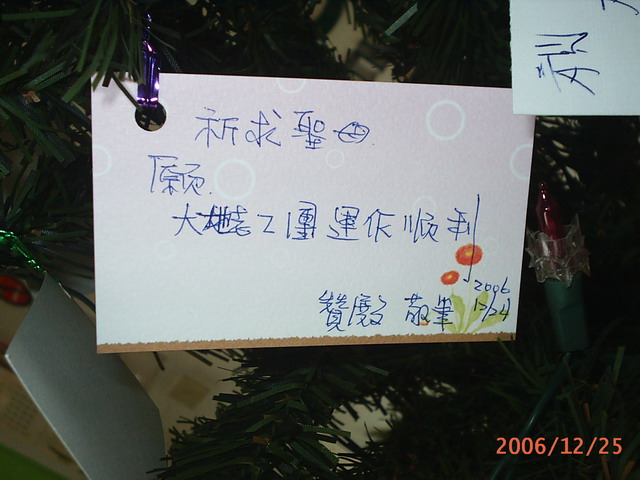 祈求聖母
願
大樹志工團運作順利
贊殿 敬筆
2006
12/24
2006/12/25